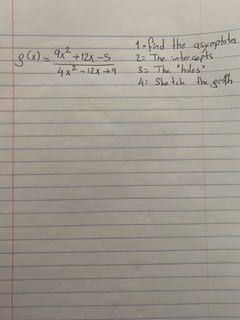 g(x) = 9x² + 12x - 5 / 4x² - 12x + 9
1 = find the asymptotes
2 = The intercepts
3 = The "holes"
4 = Sketch the graph